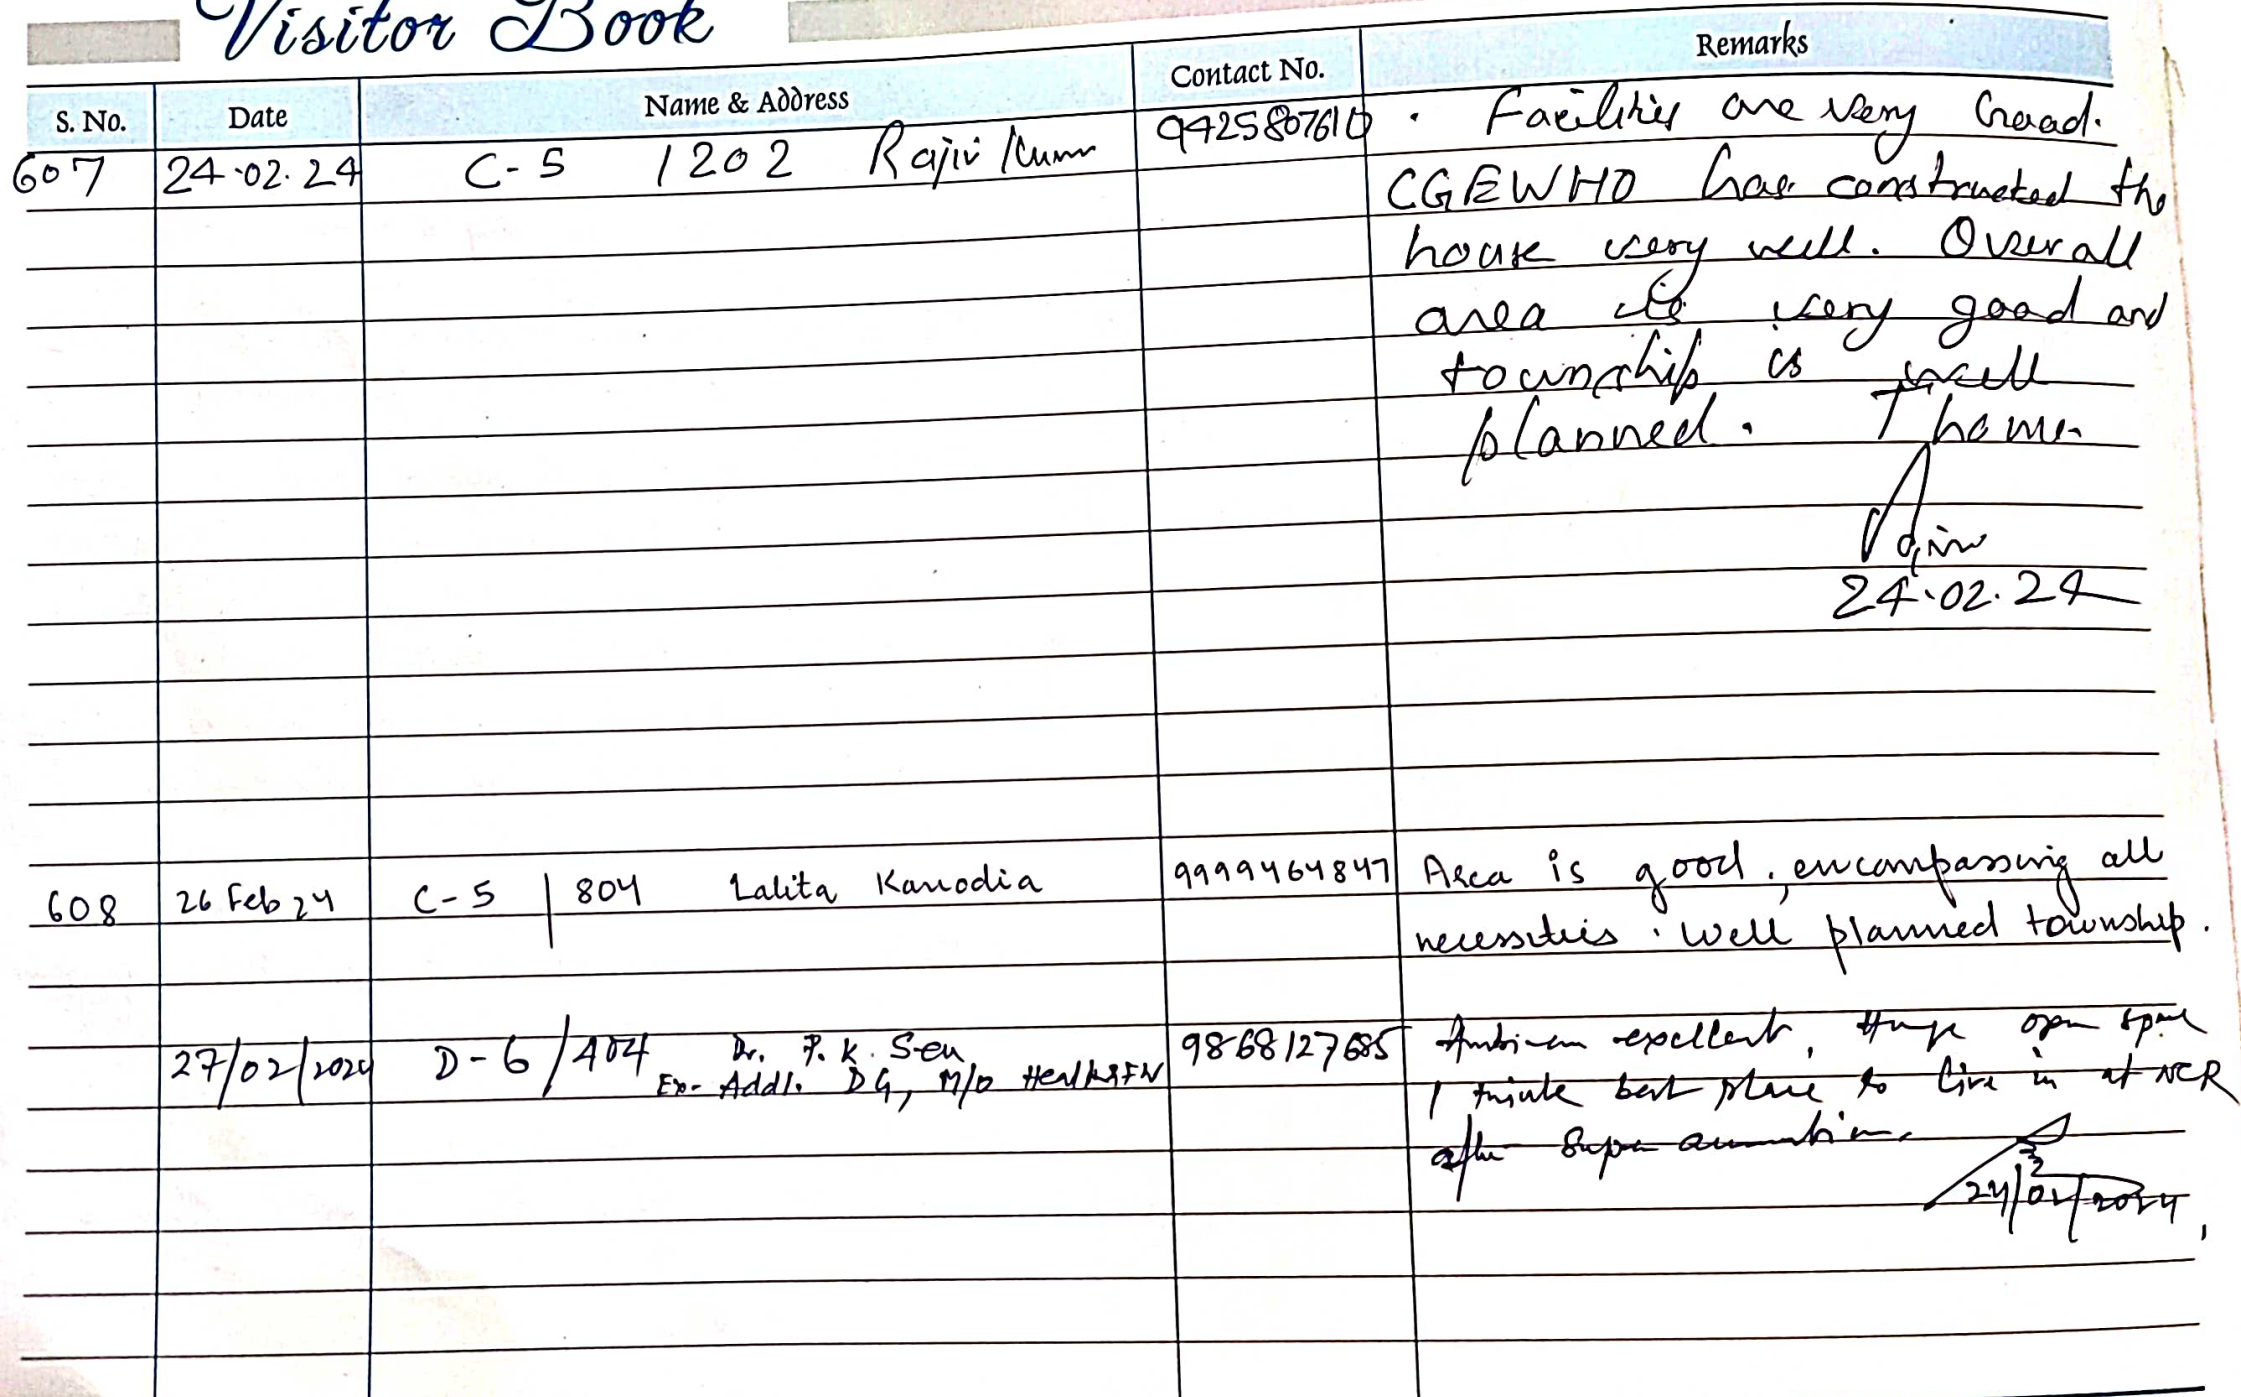 Visitor Book
S. No. Date Name & Address Contact No. Remarks
607 24.02.24 C-5 1202 Rajiv Kumar 9425807610 . Facilities are very Good.
CGEWHO has constructed the
house very well. Overall
area is very good and
township is well
planned.
24.02.24
608 26 Feb 24 C-5 | 804 Lalita Kanodia 9999464847 Area is good, encompassing all
necessities. Well planned township.
27/02/2024 D-6/404 Dr. P. K. Sen 9868127685 excellent, Huge open space
Ex- Addl. DG, M/o Health & FW I think best place to live in at NCR
after Superannuation.